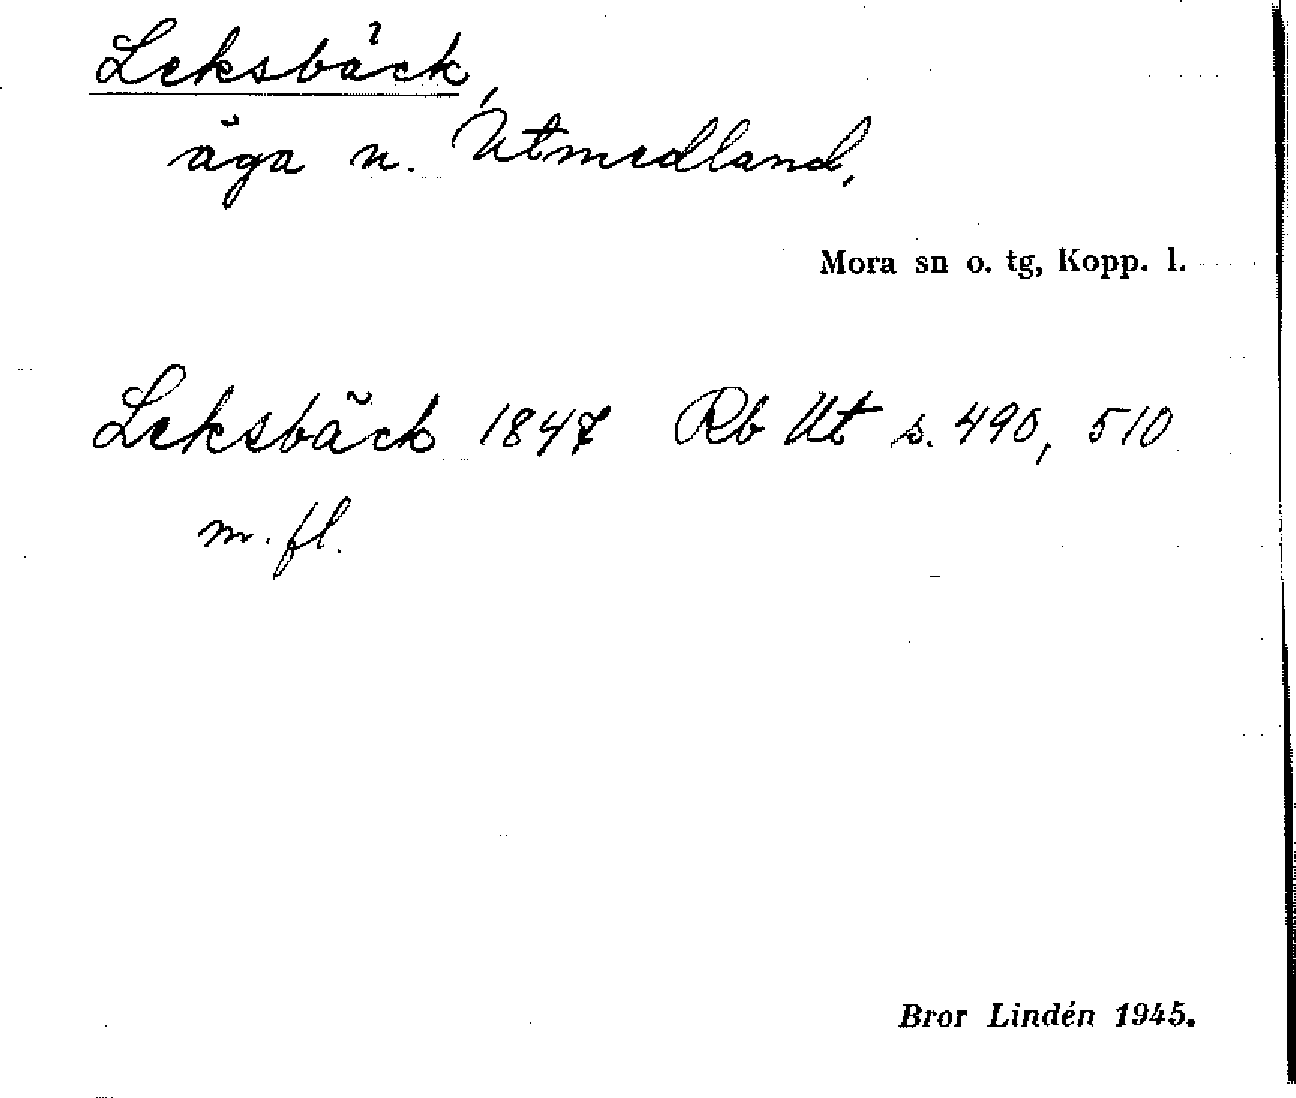 Leksbäck,
äga n. Utmedland,
Mora sn o. tg, Kopp. l.
Leksbäck 1847 Rb Ut s. 490, 510
m. fl.
Bror Lindén 1945.